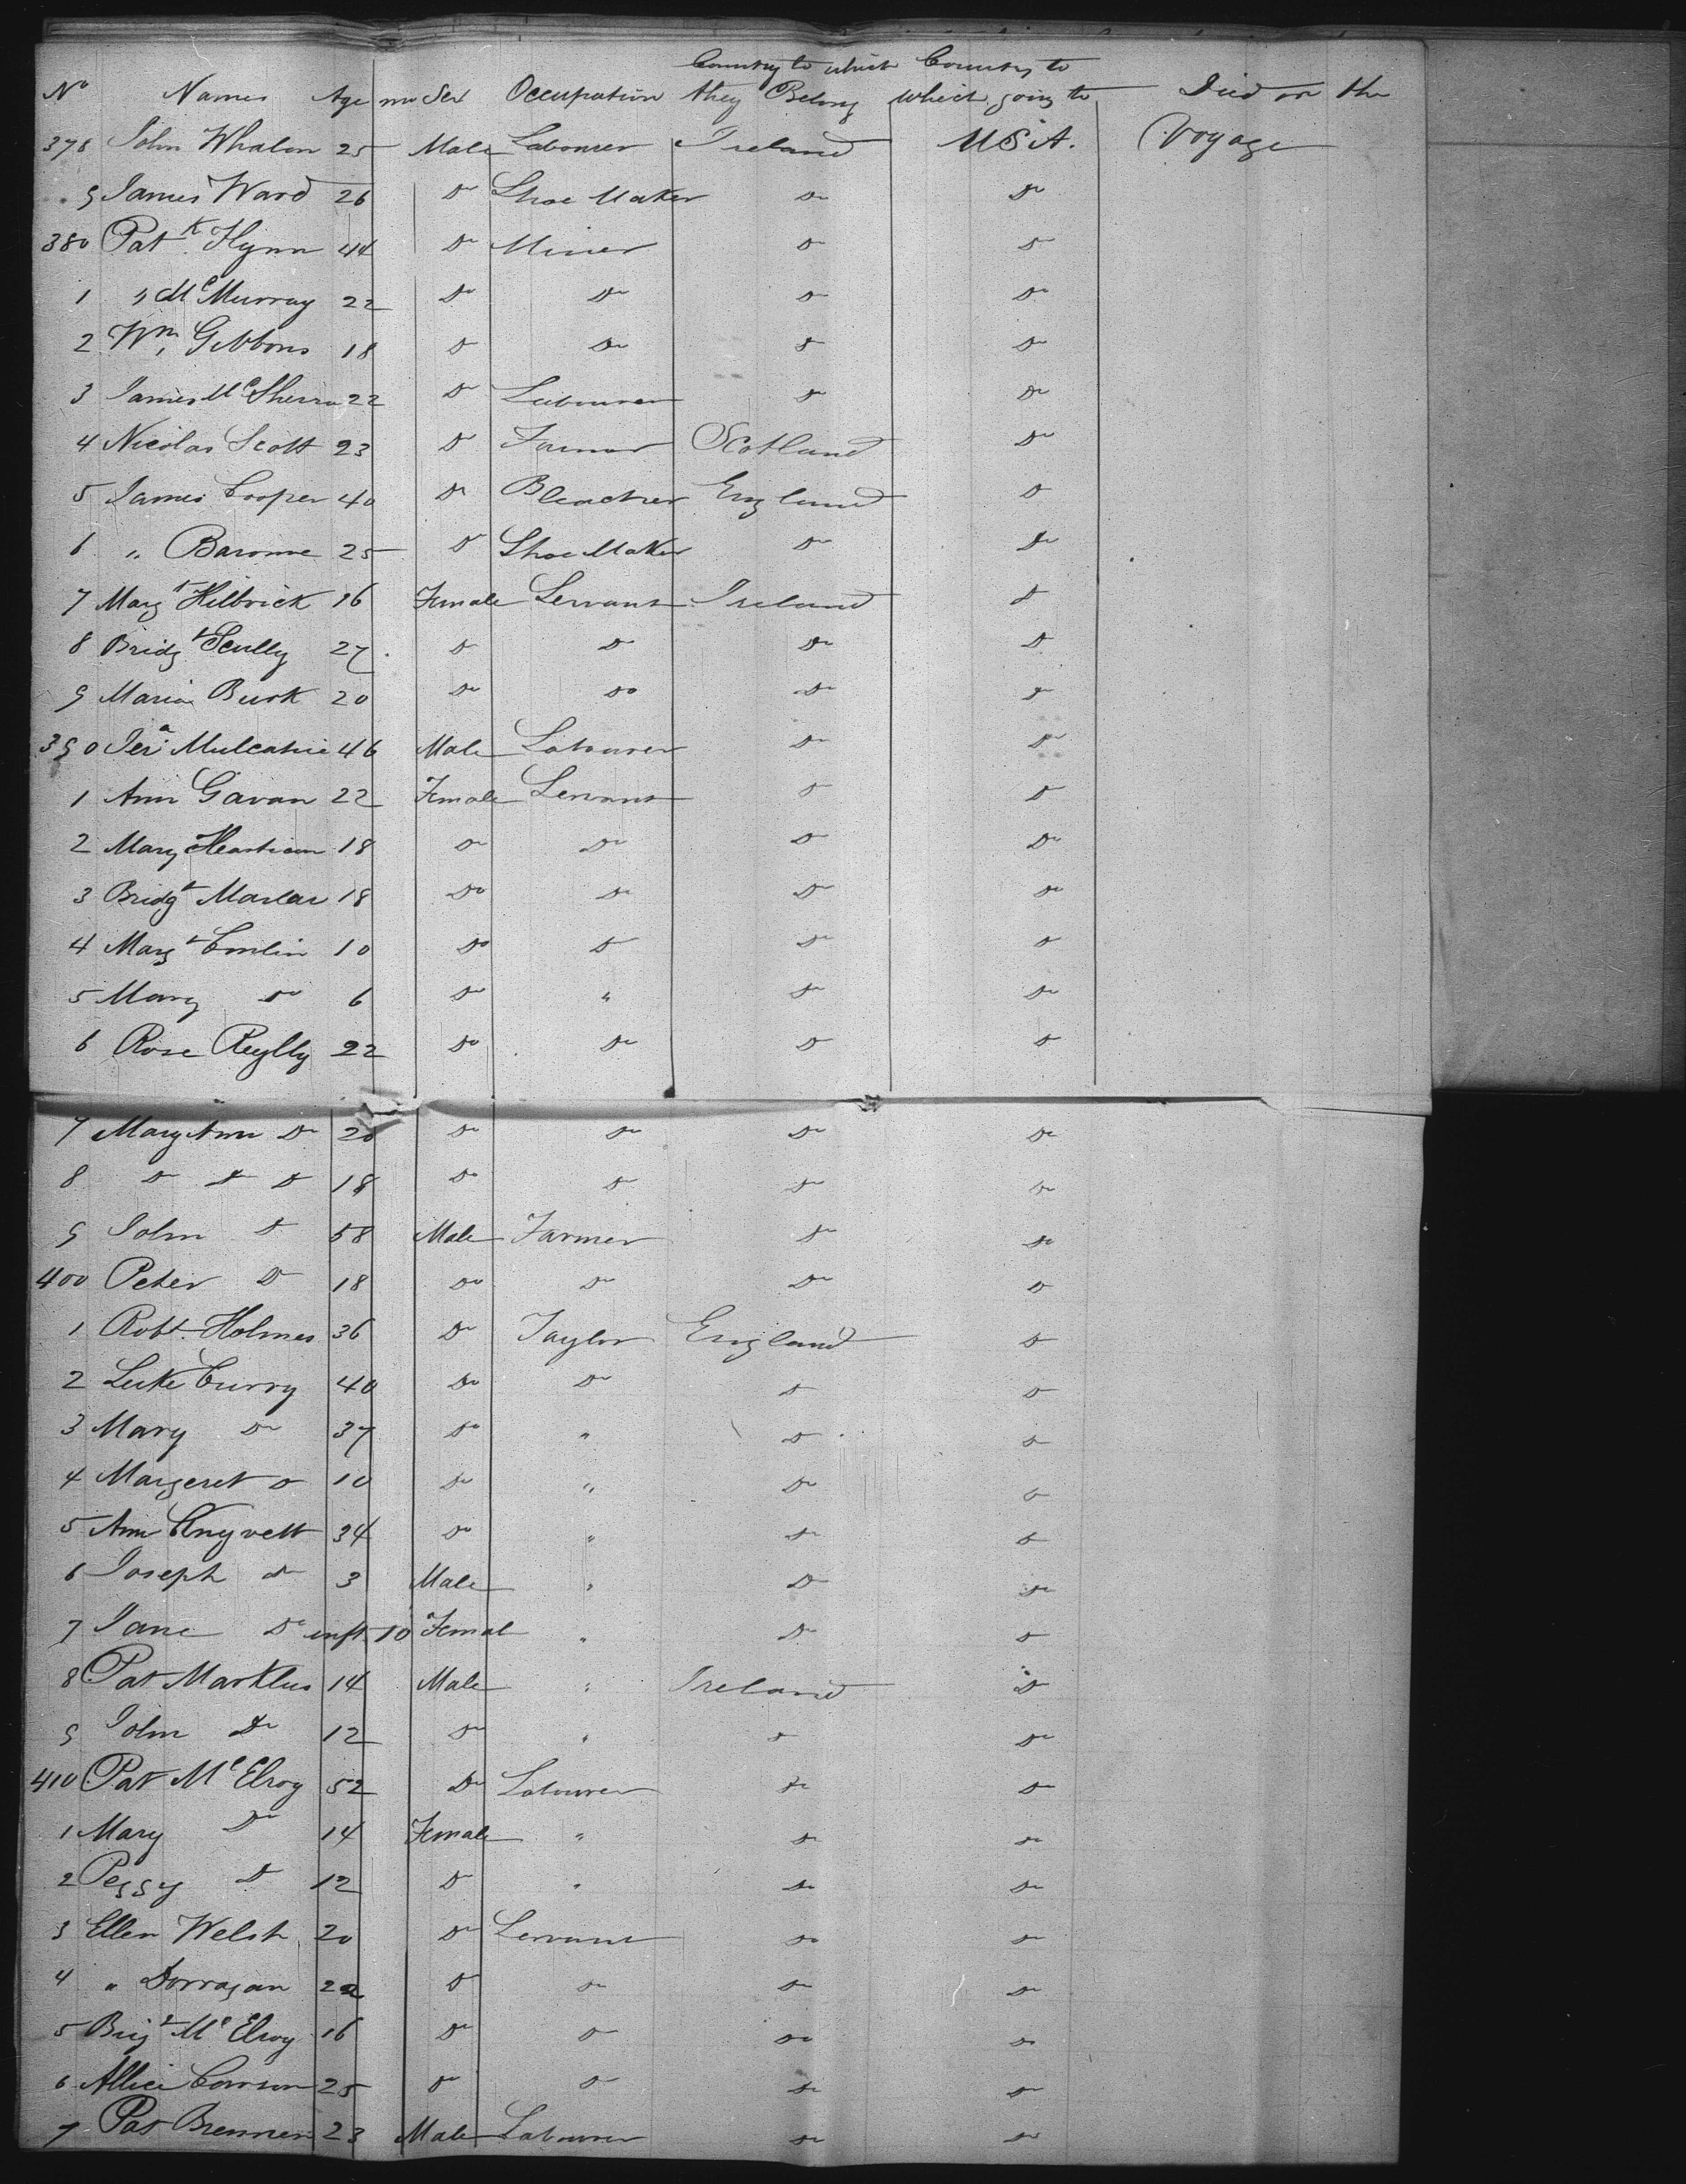 Country to which Country to
No Names Age mo Sex Occupation they Belong which going to Died on the
378 John Whalen 25 Male Labourer Ireland U.S.A. Voyage
9 James Ward 26 Do Shoe Maker Do Do
380 Patk Flynn 44 Do Miner Do Do
1 " McMurray 22 Do Do Do Do
2 Wm Gibbons 18 Do Do Do Do
3 James McSherra 22 Do Labourer Do Do
4 Nicolas Scott 23 Do Farmer Scotland Do
5 James Cooper 40 Do Bleacher England Do
6 " Baronne 25 Do Shoe Maker Do Do
7 Margt Kilbrick 16 Female Servant Ireland Do
8 Bridgt Scully 27 Do Do Do Do
9 Maria Burk 20 Do Do Do Do
390 Jera Mulcahie 46 Male Labourer Do Do
1 Ann Gavan 22 Female Servant Do Do
2 Mary 18 Do Do Do Do
3 Bridgt 18 Do Do Do Do
4 Margt Conlin 10 Do Do Do Do
5 Mary Do 6 Do " Do Do
6 Rose Reylly 22 Do Do Do Do
7 Mary Ann Do 20 Do Do Do Do
8 Do Do Do 18 Do Do Do Do
9 John Do 58 Male Farmer Do Do
400 Peter Do 18 Do Do Do Do
1 Robt. Holmes 36 Do Taylor England Do
2 Luke Curry 40 Do Do Do Do
3 Mary Do 37 Do " Do Do
4 Margeret Do 10 Do " Do Do
5 Ann Knyvett 34 Do " Do Do
6 Joseph Do 3 Male " Do Do
7 Jane Do inft 10 Femal " Do Do
8 Pat Marklus 14 Male " Ireland Do
9 John Do 12 Do " Do Do
410 Pat McElroy 52 Do Labourer Do Do
1 Mary Do 14 Female " Do Do
2 Peggy Do 12 Do " Do Do
3 Ellen Welsh 20 Do Servant Do Do
4 " Dorragan 22 Do Do Do Do
5 Brigt McElroy 16 Do Do Do Do
6 Allice 25 Do Do Do Do
7 Pat Brennen 23 Male Labourer Do Do